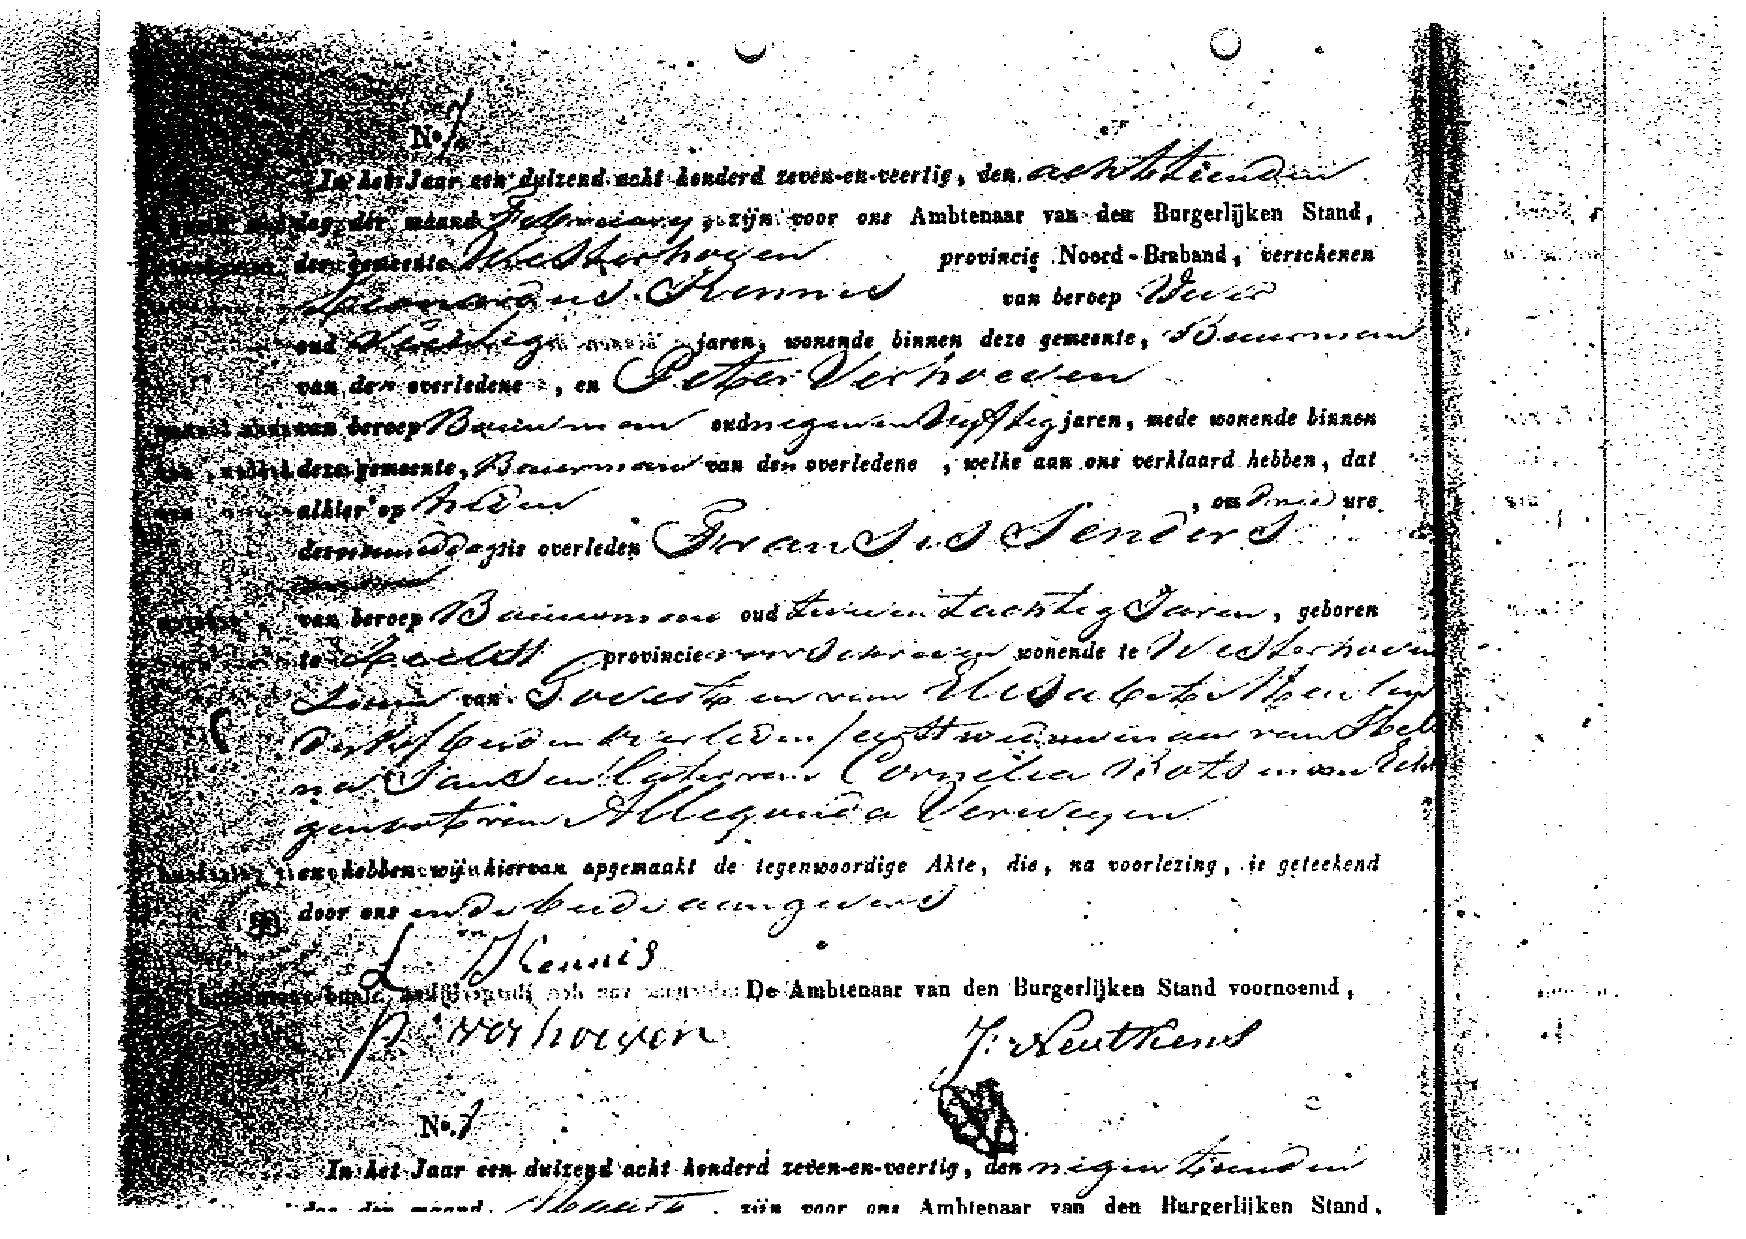 No. 7
In het Jaar een duizend acht honderd zeven-en-veertig, den achttienden
dag der maand February, zijn voor ons Ambtenaar van den Burgerlijken Stand,
der gemeente Westerhoven provincie Noord-Braband, verschenen
Leonardus Kennis van beroep Wever
oud Veertig jaren, wonende binnen deze gemeente, Buurman
van den overledene, en Peter Verhoeven
van beroep Bouwman oud negen en vijftig jaren, mede wonende binnen
deze gemeente, Buurman van den overledene, welke aan ons verklaard hebben, dat
alhier op heden, om drie ure
des middags is overleden Fransis Senders
van beroep Bouwman oud twee en tachtig Jaren, geboren
te provincie wonende te Westerhoven
Zoon van Govert en van Elisabeth
beiden overleden eerst weduwenaar van
Jansen later van Cornelia en van Echt
genoote van Allegonda Verwegen
hebben wij hiervan opgemaakt de tegenwoordige Akte, die, na voorlezing, is geteekend
door ons en de beide aangevers
L Kennis
De Ambtenaar van den Burgerlijken Stand voornoemd,
P verhoeven J: Neutkens
No. 7
In het Jaar een duizend acht honderd zeven-en-veertig, den negentienden
dag der maand Maart, zijn voor ons Ambtenaar van den Burgerlijken Stand,